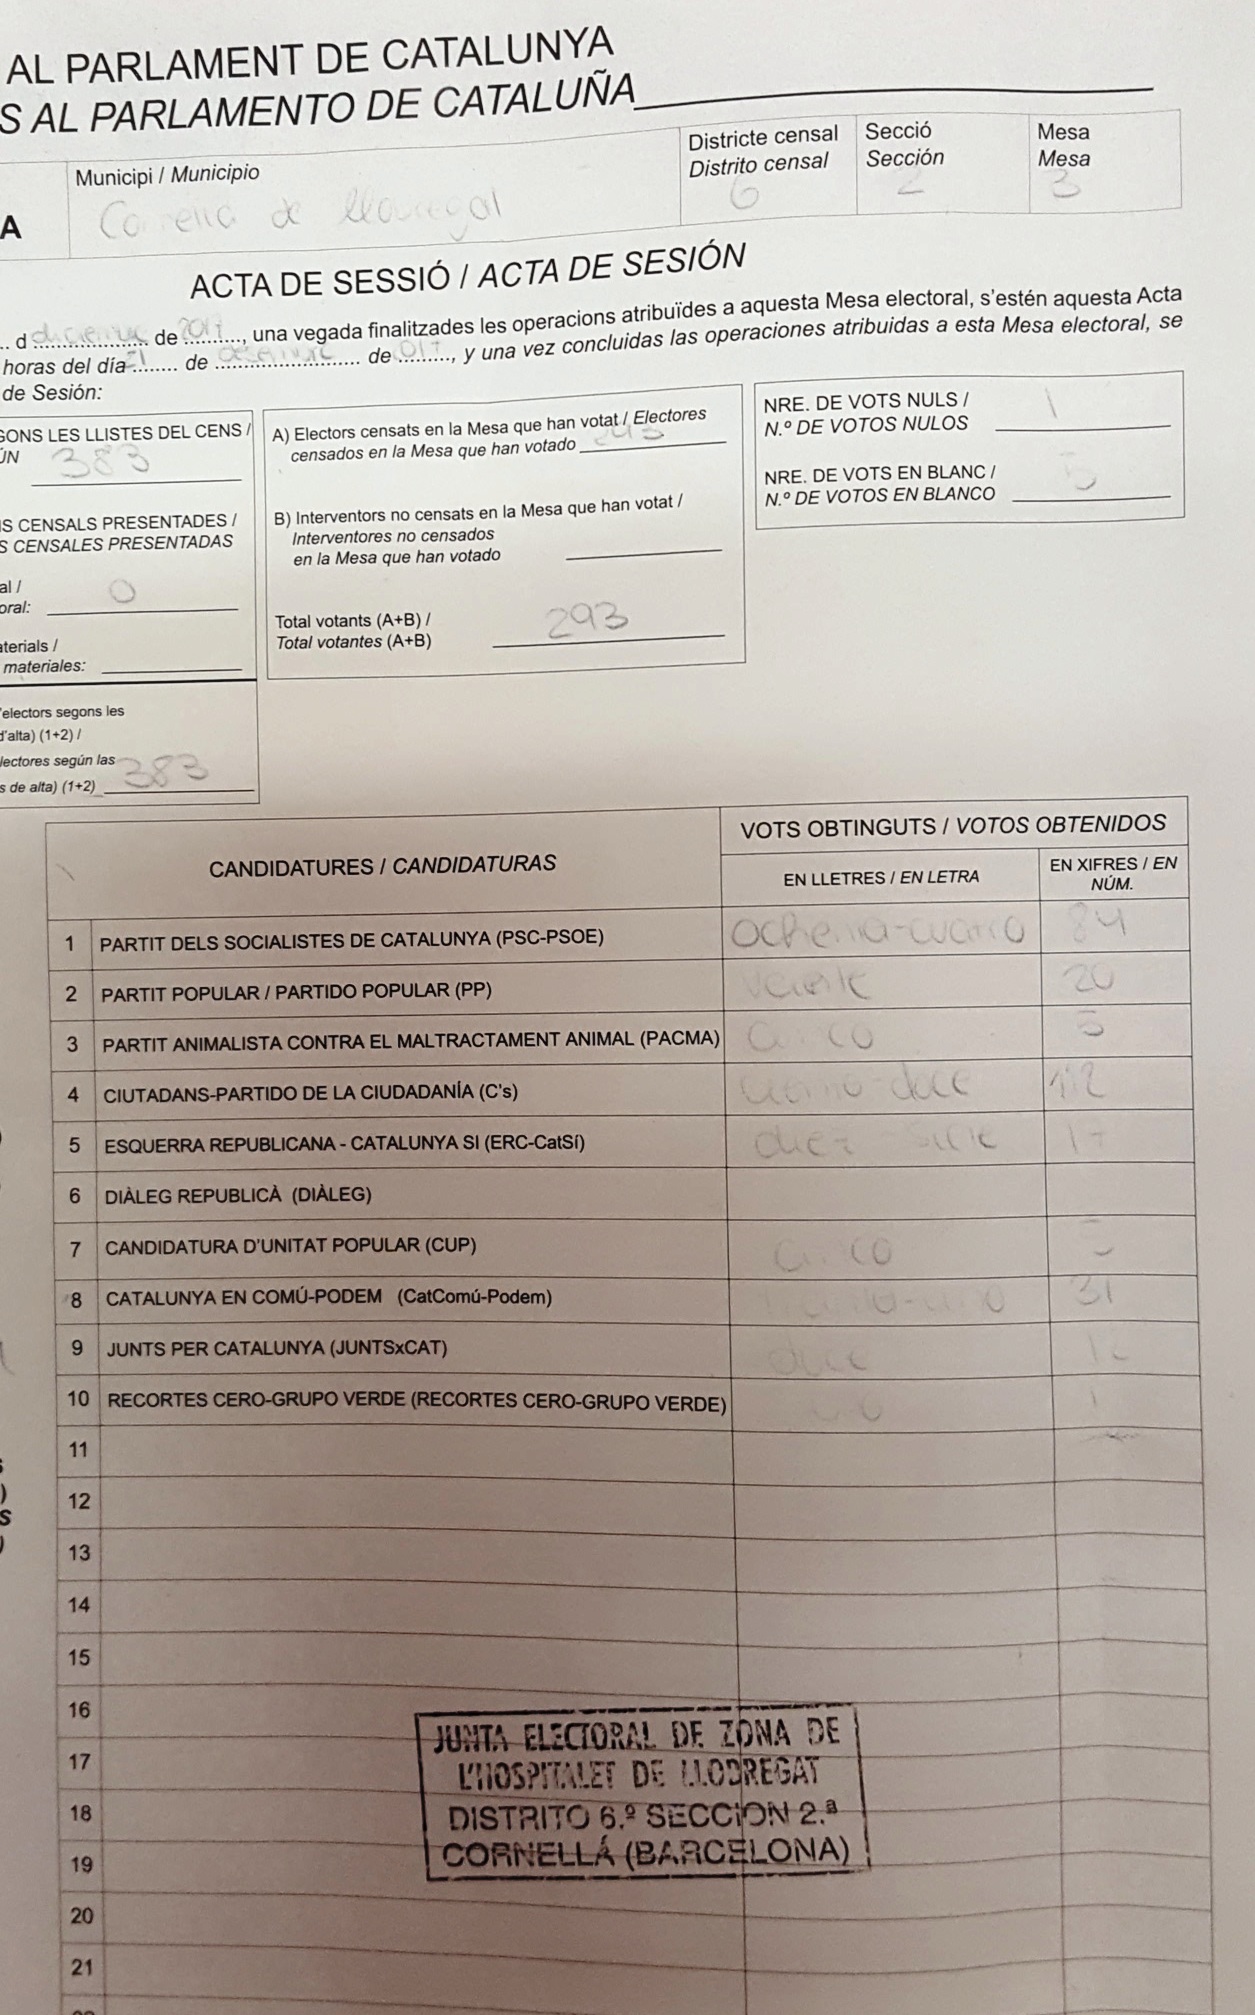 AL PARLAMENT DE CATALUNYA
S AL PARLAMENTO DE CATALUÑA
Municipi / Municipio
Districte censal
Distrito censal
6
Secció
Sección
2
Mesa
Mesa
3
A
de
ACTA DE SESSIÓ / ACTA DE SESIÓN
.. d de 2017, una vegada finalitzades les operacions atribuïdes a aquesta Mesa electoral, s'estén aquesta Acta
horas del día 21 de de 017, y una vez concluidas las operaciones atribuidas a esta Mesa electoral, se
de Sesión:
GONS LES LLISTES DEL CENS /
ÚN
383
S CENSALS PRESENTADES /
S CENSALES PRESENTADAS
al /
oral: 0
aterials /
materiales:
'electors segons les
d'alta) (1+2) /
lectores según las
s de alta) (1+2) 383
A) Electors censats en la Mesa que han votat / Electores
censados en la Mesa que han votado 293
B) Interventors no censats en la Mesa que han votat /
Interventores no censados
en la Mesa que han votado
Total votants (A+B) /
Total votantes (A+B) 293
NRE. DE VOTS NULS /
N.º DE VOTOS NULOS 1
NRE. DE VOTS EN BLANC /
N.º DE VOTOS EN BLANCO 5
CANDIDATURES / CANDIDATURAS
VOTS OBTINGUTS / VOTOS OBTENIDOS
EN LLETRES / EN LETRA
EN XIFRES / EN
NÚM.
1 PARTIT DELS SOCIALISTES DE CATALUNYA (PSC-PSOE) 84
2 PARTIT POPULAR / PARTIDO POPULAR (PP) veinte 20
3 PARTIT ANIMALISTA CONTRA EL MALTRACTAMENT ANIMAL (PACMA) cinco 5
4 CIUTADANS-PARTIDO DE LA CIUDADANÍA (C's) doce 112
5 ESQUERRA REPUBLICANA - CATALUNYA SI (ERC-CatSí) diez-siete 17
6 DIÀLEG REPUBLICÀ (DIÀLEG)
7 CANDIDATURA D'UNITAT POPULAR (CUP) cinco 5
8 CATALUNYA EN COMÚ-PODEM (CatComú-Podem) 31
9 JUNTS PER CATALUNYA (JUNTSxCAT) doce 12
10 RECORTES CERO-GRUPO VERDE (RECORTES CERO-GRUPO VERDE) 1
11
12
13
14
15
16
17
18
19
20
21
JUNTA ELECTORAL DE ZONA DE
L'HOSPITALET DE LLOBREGAT
DISTRITO 6.º SECCION 2.ª
CORNELLÁ (BARCELONA)